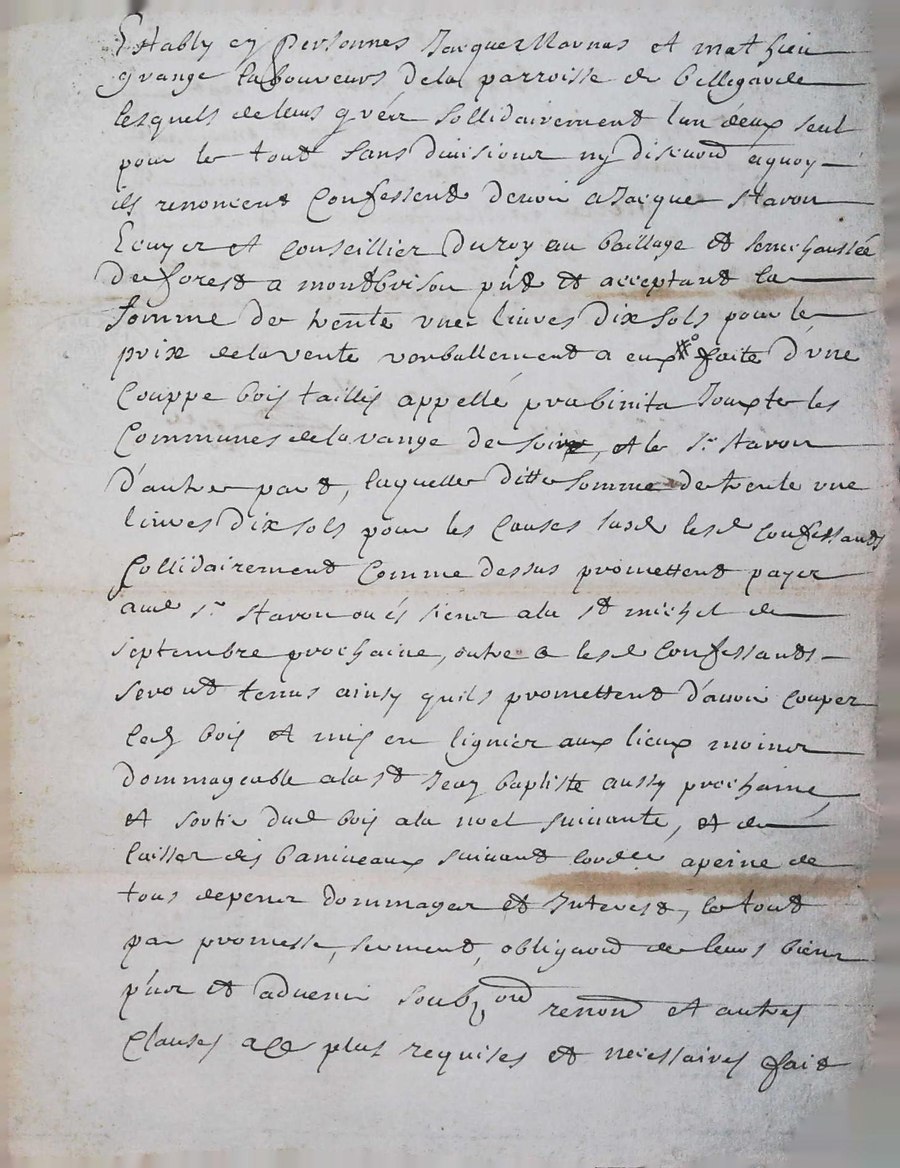 Establÿ en personnes Jacques Marnas et mathieu
grange laboureurs de la parroisse de bellegarde
lesquels de leurs gréez sollidairement l'un deux seul
pour le tout sans divisions ny discuõn aquoy
ils renoncent confessent devoir a Jacques Stavon
Ecuyer et conseillier du roy au baillage et senechaussée
de forest a montbrison pñt et acceptant la
somme de trente une livres dix sols pour le
prix de la vente verballement a eux faite d'une
couppe bois taillis appellé prabinita Jouxte les
communes de la vange de et le sr Stavon
d'autre part, laquelle ditte somme de trente une
livres dix sols pour les causes susd lesd confessants
sollidairement comme dessus promettent payer
aud sr Stavon ou és siens a la st michel de
septembre prochaine, outre a lesd confessants
seront tenus ainsy quils promettent d'avoir couper
led bois et mis en lignier aux lieux moins
dommageable a la st Jean baptiste aussy prochaine
et sortir dud bois a la noel suivante, et de
laisser des baniveaux suivant apeine de
tous depens dommages et Interest, le tout
par promesse, serment, obligaõn de leurs biens
pñs et advenir soubz renonõn et autres
clauses plus requises et necessaires fait